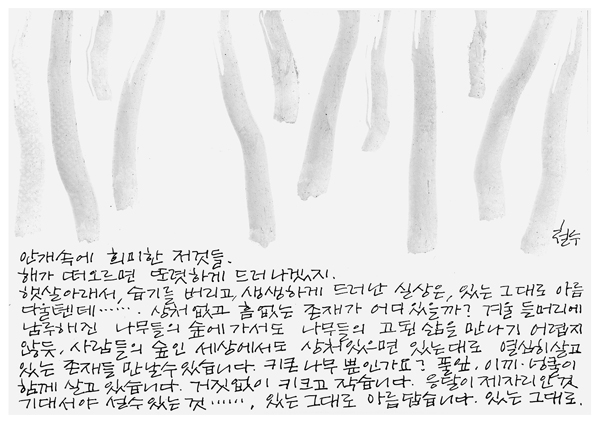 철수
안개속에 희미한 저것들.
해가 떠오르면 또렷하게 드러나겠지.
햇살아래서, 습기를 버리고, 생생하게 드러난 실상은, 있는 그대로 아름
다울텐데……. 상처 없고 흠 없는 존재가 어디 있을까? 겨울 들머리에
남루해진 나무들의 숲에 가서도 나무들의 고된 삶을 만나기 어렵지
않듯, 사람들의 숲인 세상에서도 상처 있으면 있는대로 열심히 살고
있는 존재들 만날 수 있습니다. 키큰 나무 뿐인가요? 풀잎, 이끼·넝쿨이
함께 살고 있습니다. 거짓없이 키크고 작습니다. 응달이 제자리인 것
기대서야 설 수 있는 것……, 있는 그대로 아름답습니다. 있는 그대로.